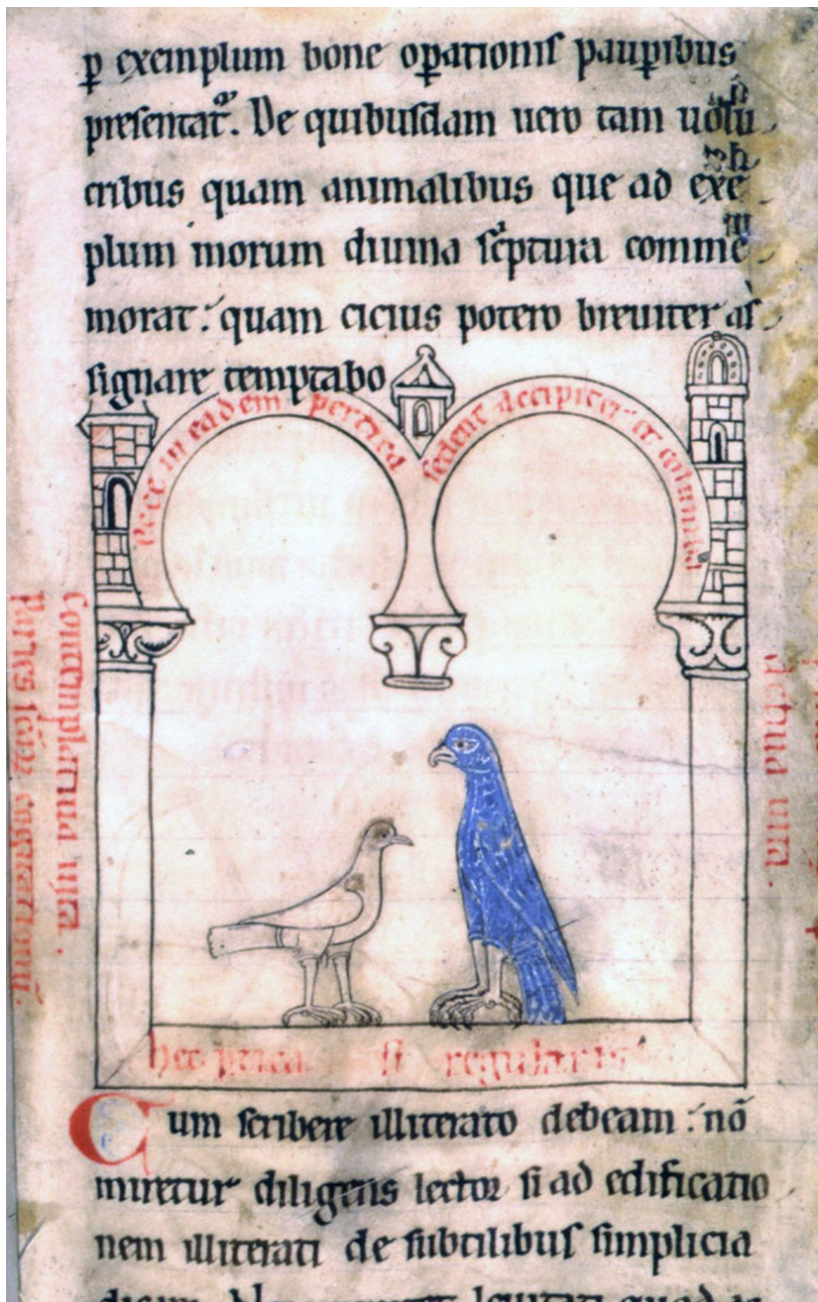 p exemplum bone opationis paupibus
presentat. De quibusdam uero tam uolu
cribus quam animalibus que ad exē
plum morum diuina sc̄ptura commē
morat: quam cicius potero breuiter as
signare temptabo
Ecce in eadem pertica
sedent accipiter et columba
Contemplatiua uita.
Paries cogitationū.
actiua uita.
hec ptica ÷ regularis
Cum scribere illiterato debeam: nō
miretur diligens lector si ad edificatio
nem illiterati de subtilibus simplicia